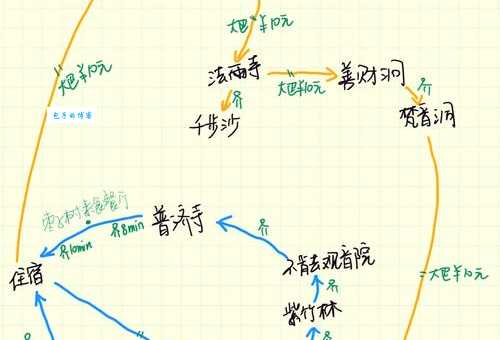 大巴¥10元
法雨寺
大巴¥10元
善财洞
步
梵音洞
步
千步沙
大巴¥10元
包子的博客
枣子树素食餐厅
步8min
普济寺
步10min
住宿
步
不肯去观音院
步
紫竹林
步
大巴¥10元